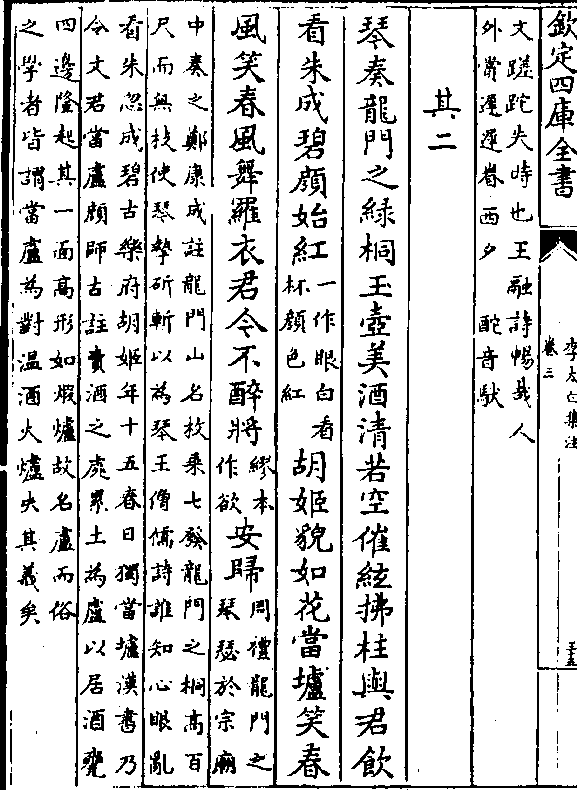 欽定四庫全書
李太白集注
卷三
文蹉跎失時也王融詩暢哉人
外賞遲遲眷西夕 酡音馱
其二
琴奏龍門之緑桐玉壺美酒清若空催絃拂柱與君飲
看朱成碧顔始紅一作眼白看杯顔色紅胡姬貌如花當壚笑春
風笑春風舞羅衣君今不醉將繆本作欲安歸周禮龍門之琴瑟於宗廟
中奏之鄭康成註龍門山名枚乗七發龍門之桐高百
尺而無枝使琴摯斫斬以為琴王僧儒詩誰知心眼亂
看朱忽成碧古樂府胡姬年十五春日獨當壚漢書乃
令文君當盧顔師古註賣酒之處累土為盧以居酒甕
四邊隆起其一面高形如煅爐故名盧而俗
之學者皆謂當盧為對温酒火爐失其義矣